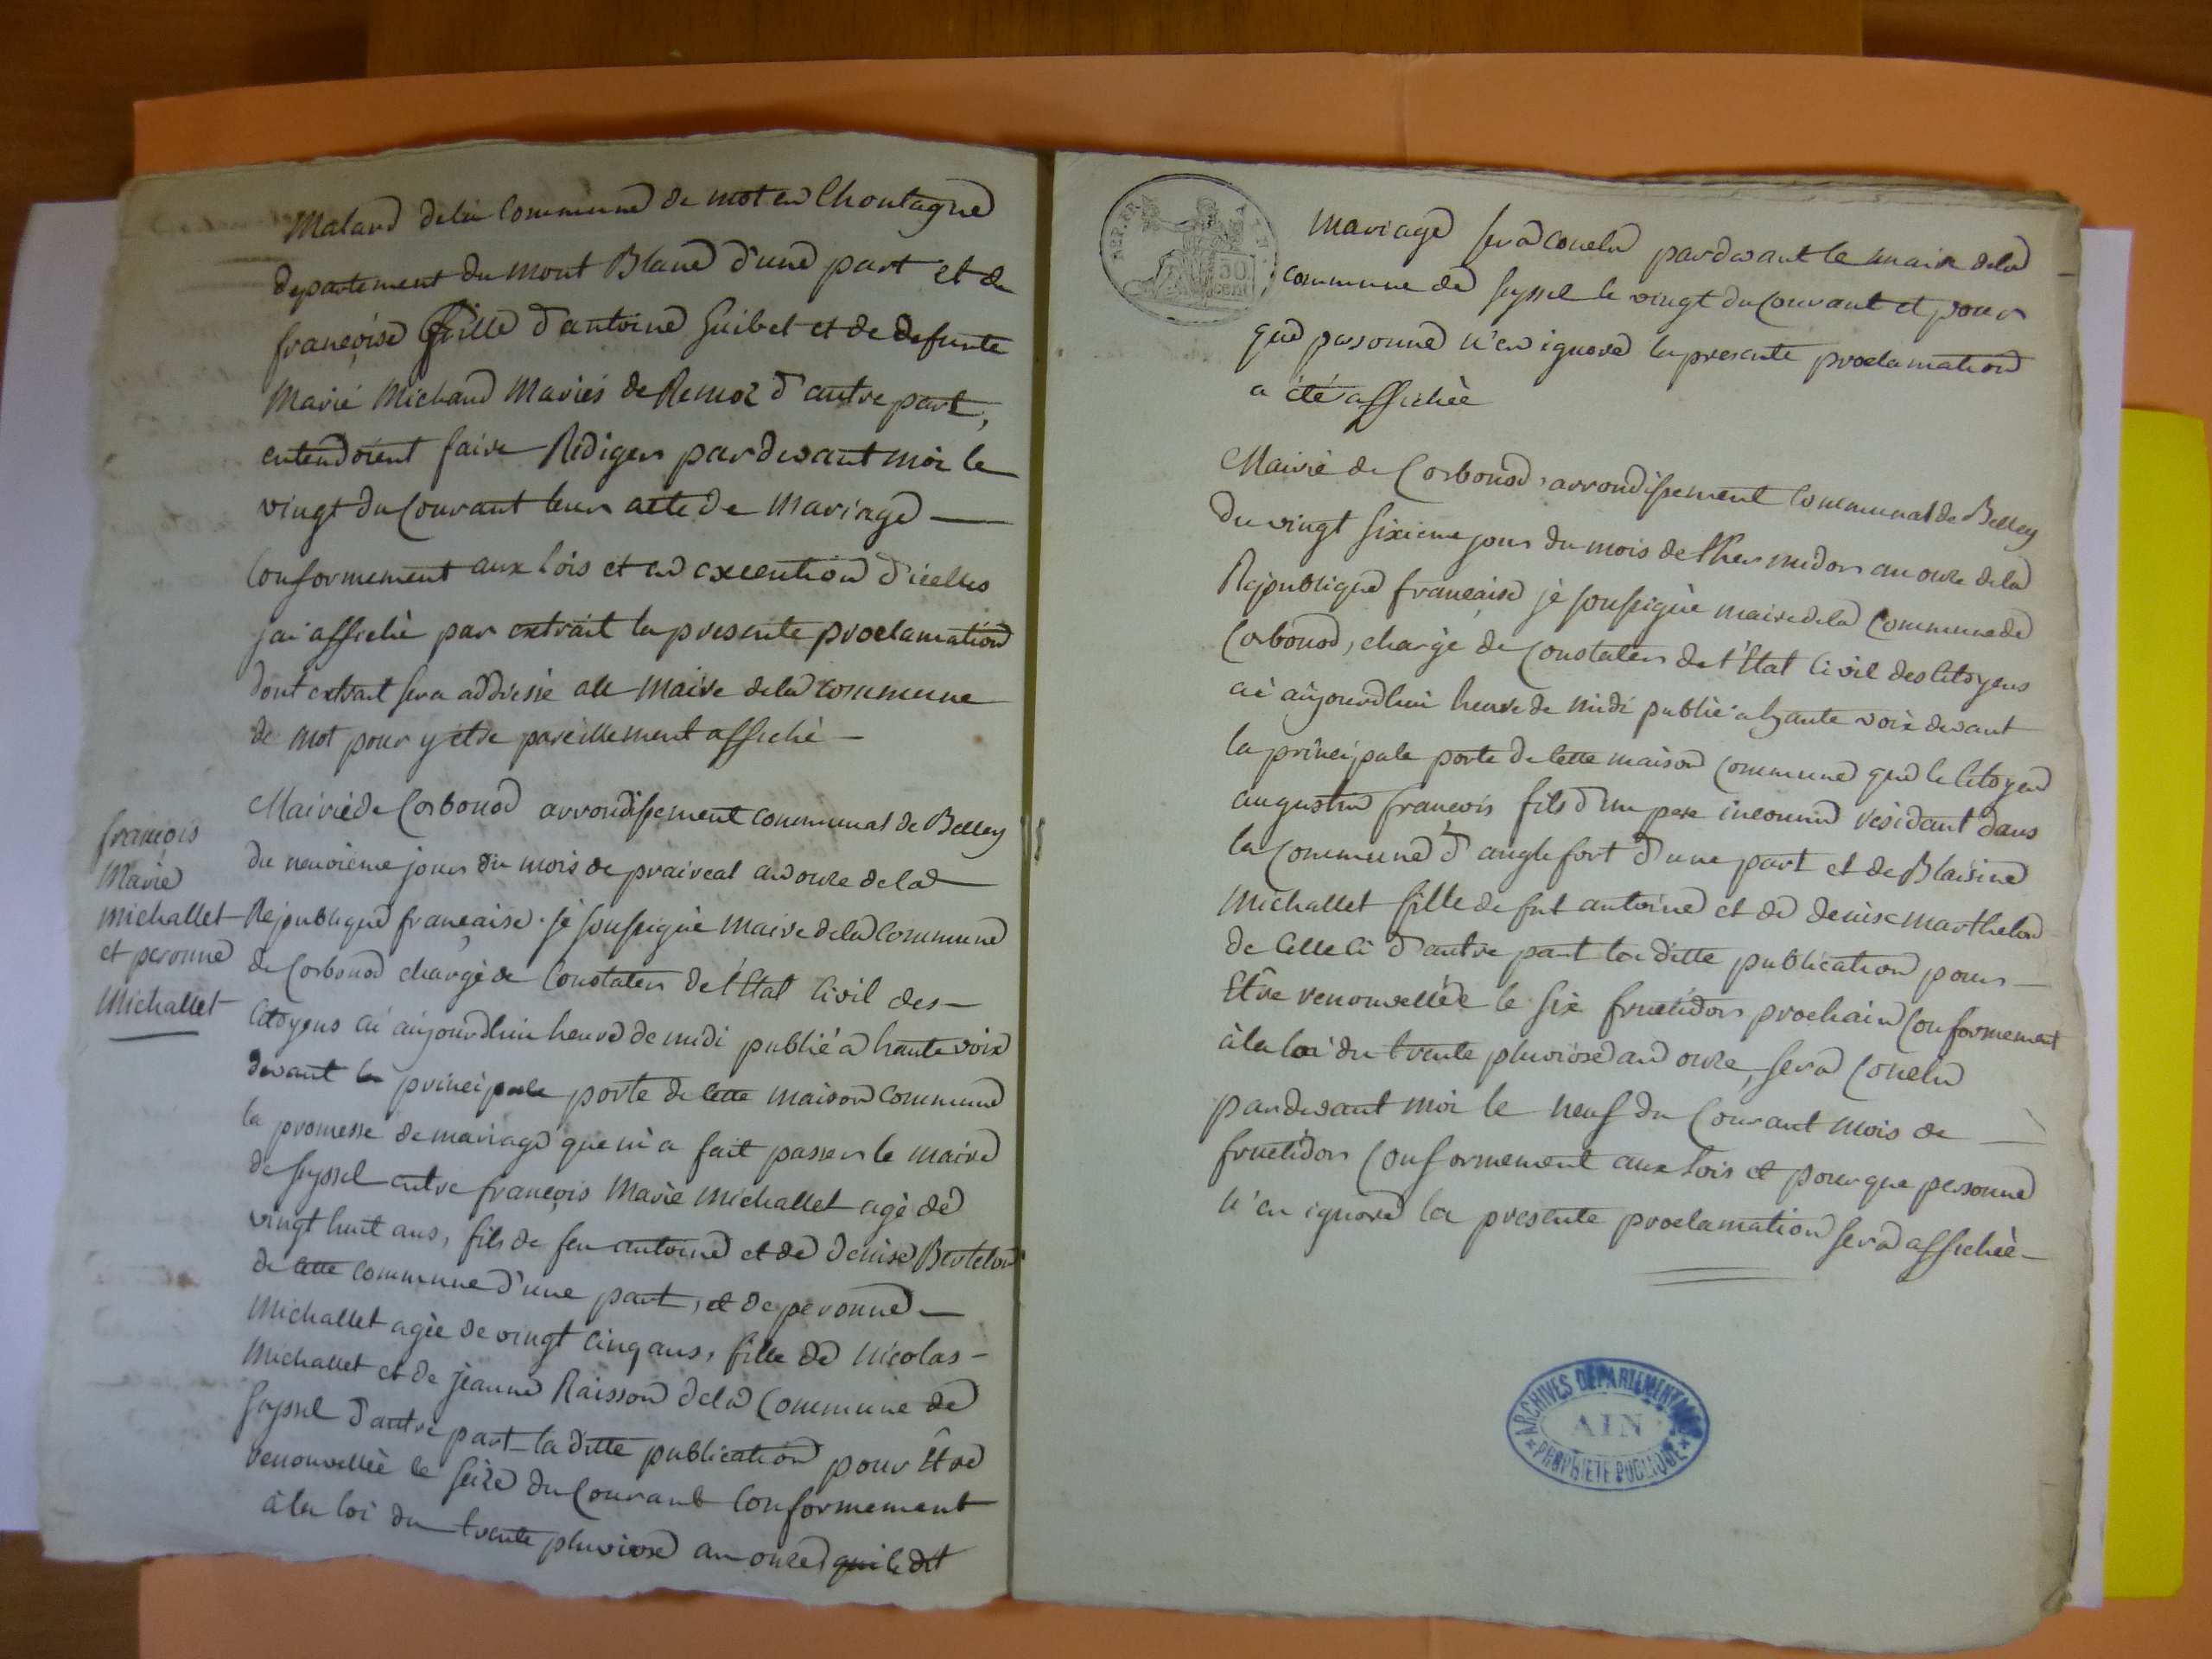 Malard dela Commune de mot en Choutagne
departement du mont Blanc d'une part et de
françoise fille d'antoine Guibet et de defunte
Marie Michaud Mariés de Remoz d'autre part,
entendoient faire Rediger pardevant moi le
vingt du Courant leur acte de Mariage —
Conformement aux lois et en execution d'icelles
jai affiché par extrait la presente proclamation
dont extrait sera addressé au maire dela commune
de mot pour y etre pareillement affiché —
françois
Marie
michallet
et peronne
Michallet
Mairie de Corbonod arrondissement communal de Belley
du neuvieme jour du mois de praireal an onze dela
Republique française. je soussigné maire dela Commune
de Corbonod chargé de Constater de l'Etat Civil des —
Citoyens ai aujourdhui heure de midi publié a haute voix
devant la principale porte de cette maison commune
la promesse de mariage que m'a fait passer le maire
de seyssel entre françois Marie Michallet agé de
vingt huit ans, fils de feu antoine et de denise Bertelon
de cette commune d'une part, et de peronne —
Michallet agée de vingt cinq ans, fille de nicolas —
Michallet et de jeanne Raisson dela Commune de
Seyssel d'autre part la ditte publication pour Être
renouvellée le seize du Courant Conformement
à la loi du trente pluviose an onze, qui le dit
REP. FRA
50
cent
mariage sera conclu pardevant le maire dela
commune de seyssel le vingt du Courant et pour
que personne n'en ignore la presente proclamation
a été affichée
Mairie de Corbonod, arrondissement Communal de Belley
du vingt sixieme jour du mois de thermidor an onze dela
Republique française je soussigné maire dela Commune de
Corbonod, chargé de Constater de l'Etat Civil des Citoyens
ai aujourdhui heure de midi publié a haute voix devant
la principale porte de cette maison Commune que le Citoyen
augustin françois fils d'un pere inconnu residant dans
la Commune d'anglefort d'une part et de Blaisine
Michallet fille de fut antoine et de denise marthelon
de Celle ci d'autre part la ditte publication pour —
Etre renouvellée le six fructidor prochain Conformement
à la loi du trente pluviose an onze, sera Conclu
pardevant moi le neuf du Courant mois de —
fructidor Conformement aux lois et pour que personne
n'en ignore la presente proclamation sera affichée —
ARCHIVES DÉPARTEMENTALES
AIN
PROPRIÉTÉ PUBLIQUE